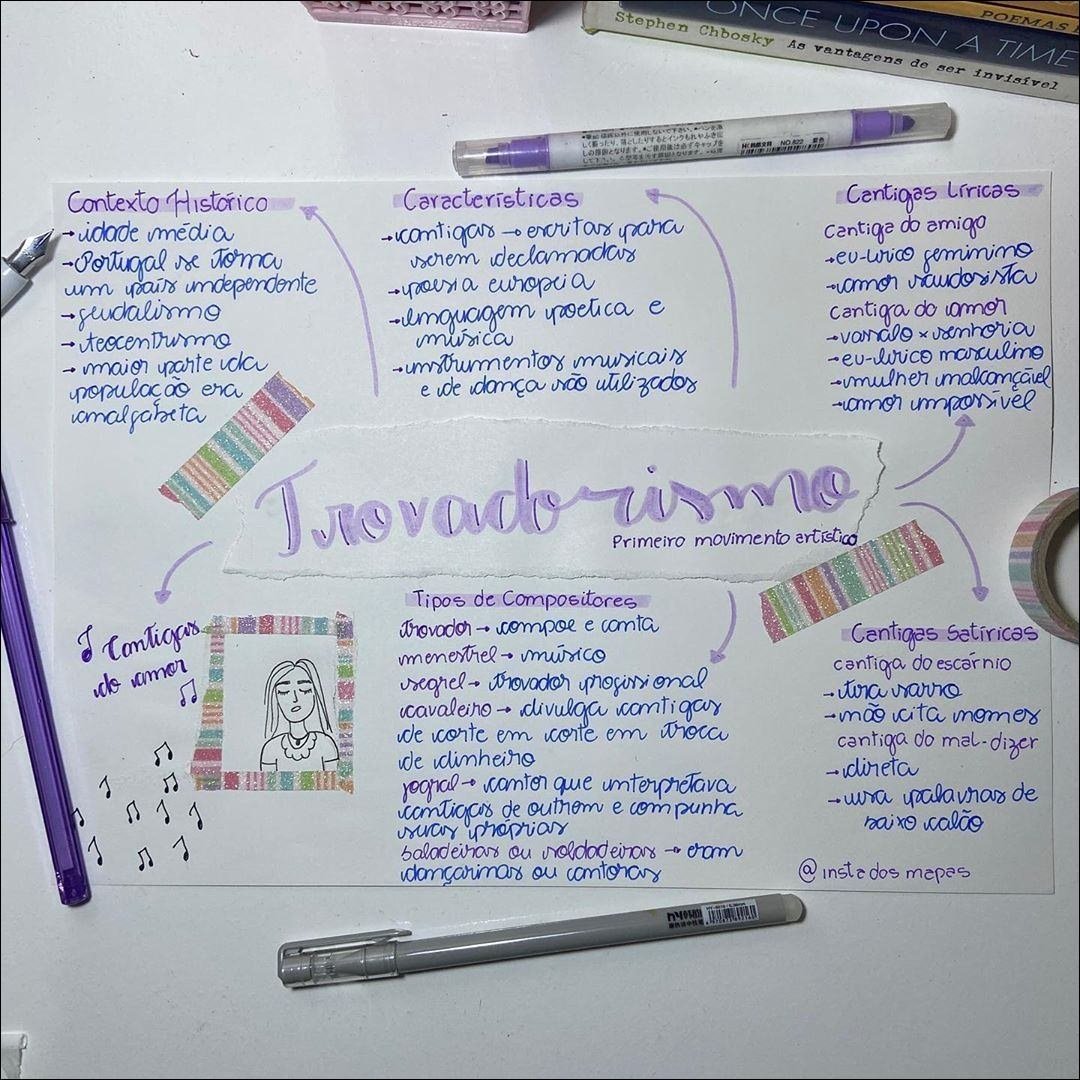 ONCE UPON A TIME
POEMAS
Stephen Chbosky As vantagens de ser invisível
NO.822 紫色
Contexto Histórico
→idade média
→Portugal se torna
um país independente
→feudalismo
→teocentrismo
→maior parte da
população era
analfabeta
Características
→cantigas → escritas para
serem declamadas
→poesia europeia
→linguagem poetica e
música
→instrumentos musicais
e de dança são utilizados
Cantigas Líricas
cantiga do amigo
→eu-lírico feminino
→amor saudosista
cantiga do amor
→vassalo × senhoria
→eu-lírico masculino
→mulher inalcançável
→amor impossível
Trovadorismo
Primeiro movimento artístico
Cantigas
do amor
Tipos de Compositores
trovador → compoe e canta
menestrel → músico
segrel → trovador profissional
cavaleiro → divulga cantigas
de corte em corte em troca
de dinheiro
jogral → cantor que interpretava
cantigas de outrem e compunha
suas próprias
baladeiras ou soldadeiras → eram
dançarinas ou cantoras
Cantigas Satíricas
cantiga do escárnio
→tira sarro
→não cita nomes
cantiga do mal-dizer
→direta
→usa palavras de
baixo calão
@instados mapas